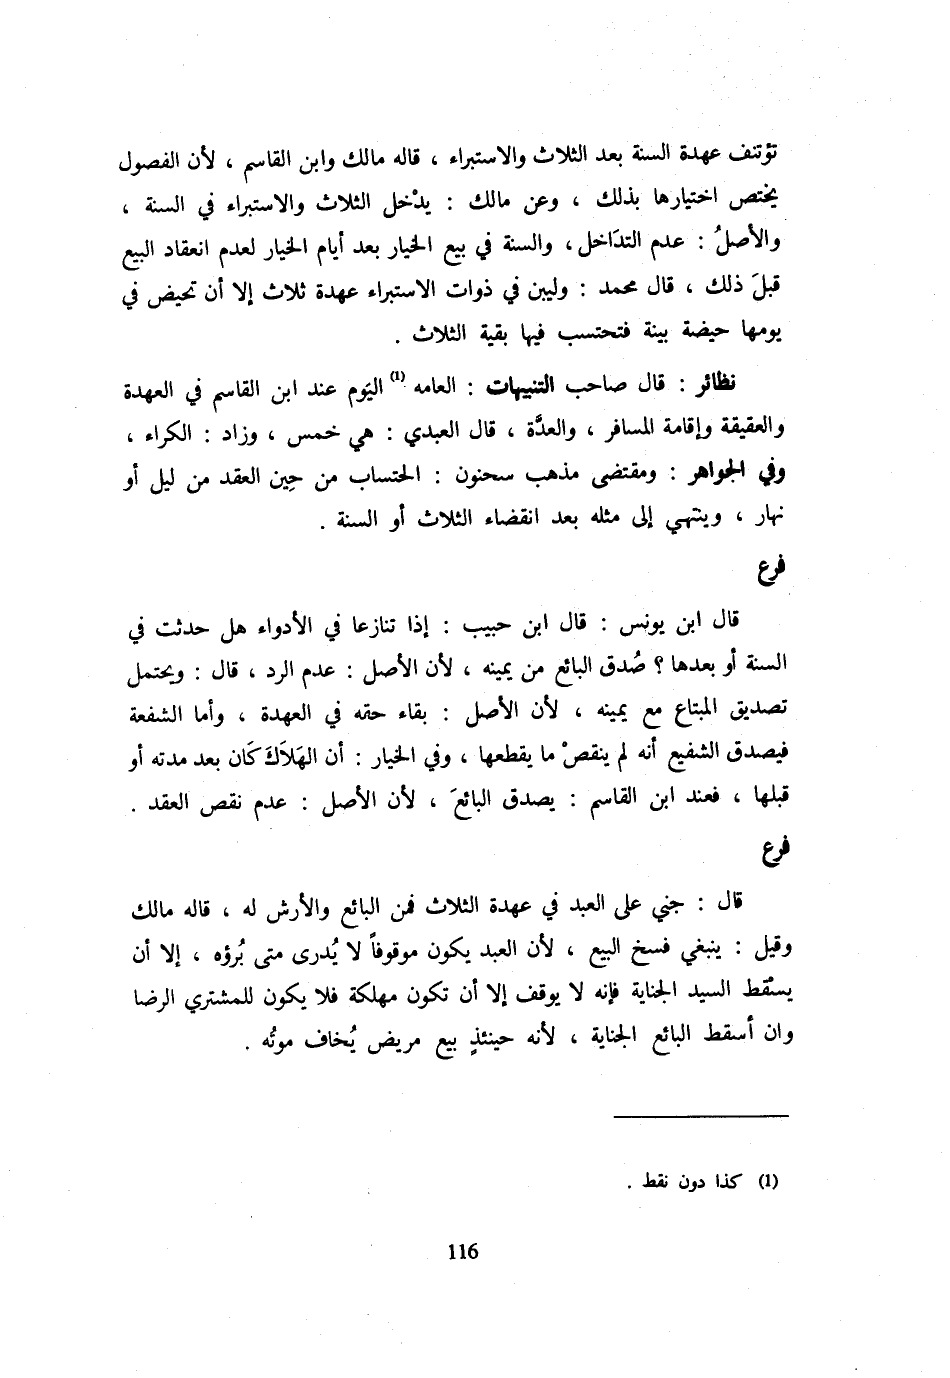 تؤتنف عهدة السنة بعد الثلاث والاستبراء ، قاله مالك وابن القاسم ، لأن الفصول
يختص اختيارها بذلك ، وعن مالك : يدْخل الثلاث والاستبراء في السنة ،
والأصلُ : عدم التدَاخل ، والسنة في بيع الخيار بعد أيام الخيار لعدم انعقاد البيع
قبلَ ذلك ، قال محمد : وليبن في ذوات الاستبراء عهدة ثلاث إلا أن تحيض في
يومها حيضة بينة فتحتسب فيها بقية الثلاث .
نظائر : قال صاحب التنبيهات : العامه (1) اليَوم عند ابن القاسم في العهدة
والعقيقة وإقامة المسافر ، والعدَّة ، قال العبدي : هي خمس ، وزاد : الكراء ،
وفي الجواهر : ومقتضى مذهب سحنون : الحتساب من حِين العقد من ليل أو
نهار ، وينتهي إلى مثله بعد انقضاء الثلاث أو السنة .
فرع
قال ابن يونس : قال ابن حبيب : إذا تنازعا في الأدواء هل حدثت في
السنة أو بعدها ؟ صُدق البائع من يمينه ، لأن الأصل : عدم الرد ، قال : ويحتمل
تصديق المبتاع مع يمينه ، لأن الأصل : بقاء حقه في العهدة ، وأما الشفعة
فيصدق الشفيع أنه لم ينقصْ ما يقطعها ، وفي الخيار : أن الهَلاَكَ كَان بعد مدته أو
قبلها ، فعند ابن القاسم : يصدق البائعَ ، لأن الأصل : عدم نقص العقد .
فرع
قال : جني على العبد في عهدة الثلاث فمن البائع والأرش له ، قاله مالك
وقيل : ينبغي فسخ البيع ، لأن العبد يكون موقوفاً لا يُدرى متى بُرؤه ، إلا أن
يسْقط السيد الجناية فإنه لا يوقف إلا أن تكون مهلكة فلا يكون للمشتري الرضا
وان أسقط البائع الجناية ، لأنه حينئذٍ بيع مريض يُخاف موتُه .
(1) كذا دون نقط .
116